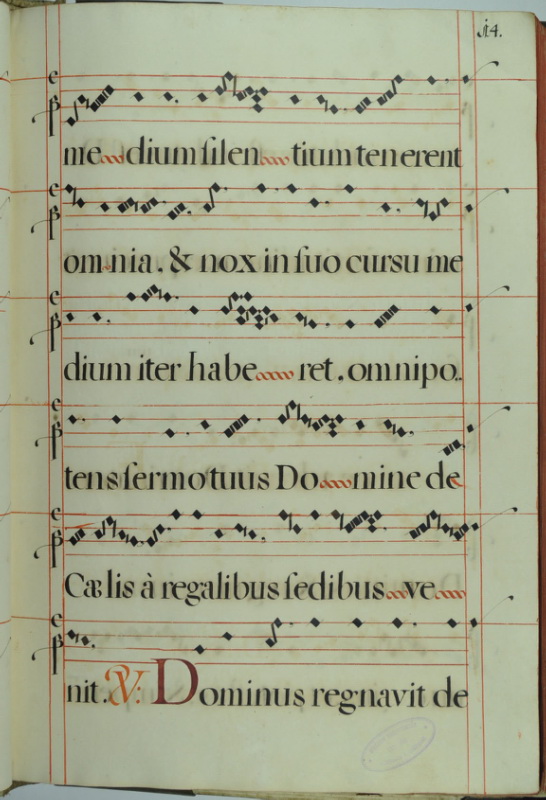 j14.
me dium ſilen tium ten erent
omnia. & nox in ſuo curſu me
dium iter habe ret. omnipo.
tens ſermo tuus Do mine de
Cælis à regalibus ſedibus ve
nit. ℣: Dominus regnavit de